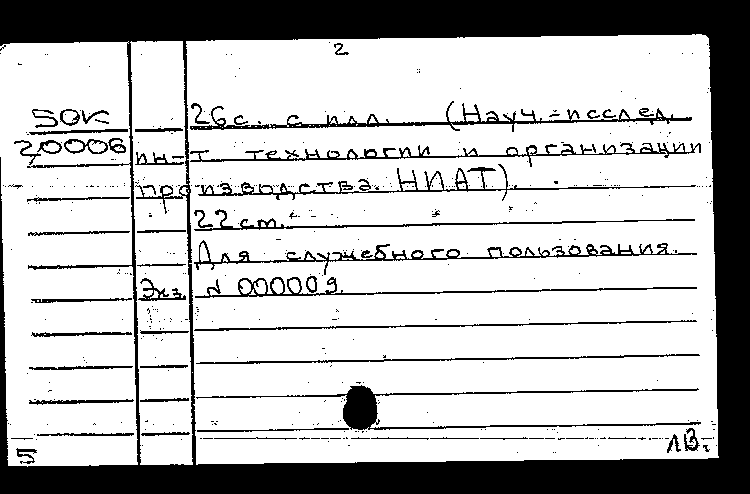 2
50К 26с. с илл. (Науч.=исслед.
20006 ин=т технологии и организации
производства. НИАТ).
22 cm.
Для служебного пользования.
Экз. N 000009.
5
ЛВ.